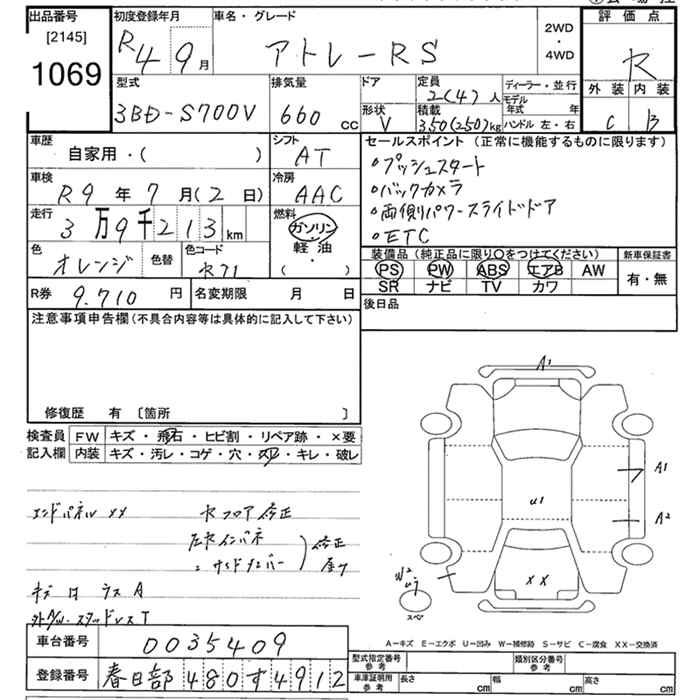 出品番号 初度登録年月 車名・グレード 2WD・4WD 評価点
[2145]
1069
R4 9月 アトレーRS
外装 内装
C B
型式 排気量 ドア 定員 ディーラー・並行
3BD-S700V 660 cc 2(4)人 モデル年式 年
形状 積載
V 350(250)kg ハンドル 左・右
車歴 シフト セールスポイント(正常に機能するものに限ります)
自家用・( ) AT
・プッシュスタート
車検 冷房 ・バックカメラ
R9年7月(2日) AAC ・両側パワースライドドア
走行 燃料 ・ETC
3万9千213km ガソリン・軽油・( )
色 色替 色コード 装備品(純正品に限り○をつけてください) 新車保証書
オレンジ R71 PS PW ABS エアB AW 有・無
SR ナビ TV カワ
R券 9.710円 名変期限 月 日 後日品
注意事項申告欄(不具合内容等は具体的に記入して下さい)
修復歴 有 〔箇所 〕
検査員 FW キズ・飛石・ヒビ割・リペア跡・×要
記入欄 内装 キズ・汚レ・コゲ・穴・スレ・キレ・破レ
A1
A1
u1
A2
エンドパネル XX Rフロア修正
修正
XX
W2
スペア
A-キズ E-エクボ U-凹み W-補修跡 S-サビ C-腐食 XX-交換済
車台番号 0035409
型式指定番号 参考 類別区分番号 参考
登録番号 春日部480す4912
車庫証明用 参考 長さ cm 幅 cm 高さ cm